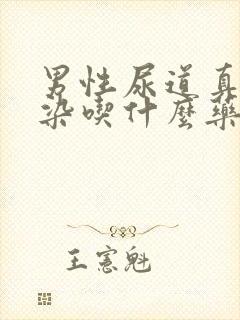 男性尿道真
染喫什麼藥
王憲魁